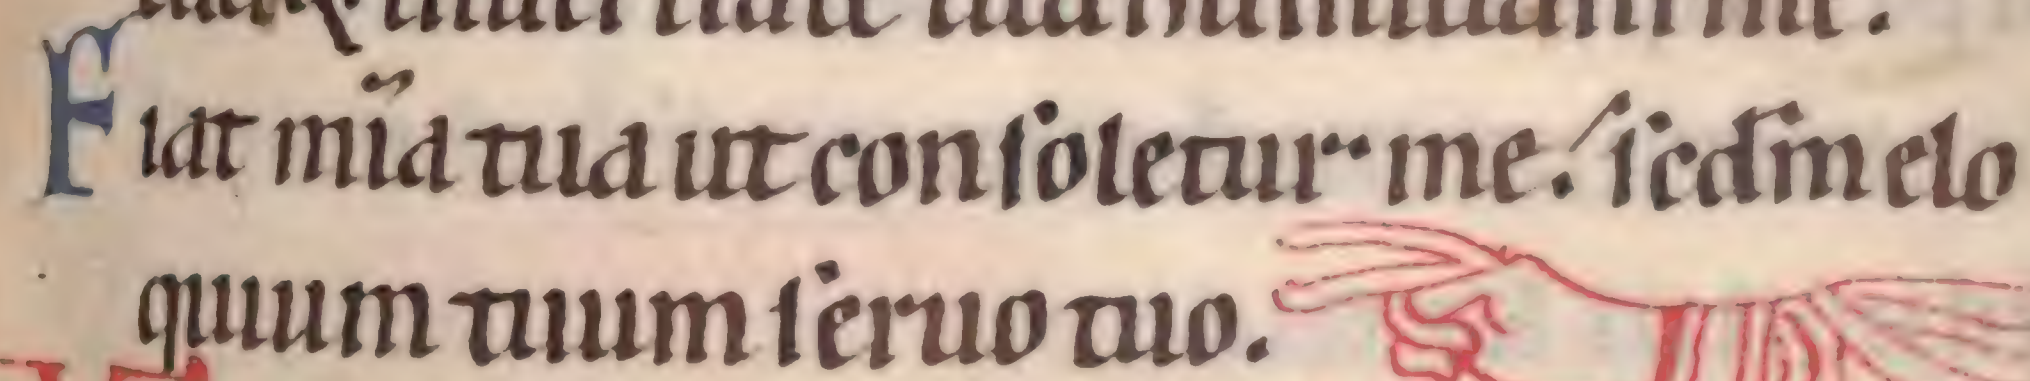 Fiat mĩa tua ut conſoletur me: ſcdm elo
quium tuum ſeruo tuo.